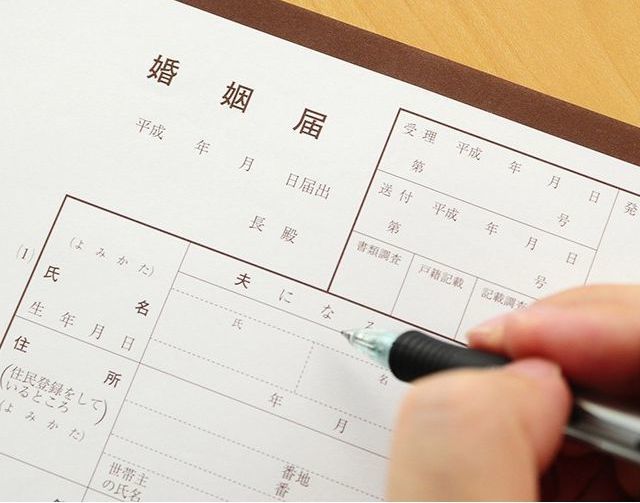 婚姻届
平成 年 月 日届出
長 殿
受理 平成 年 月 日
第 号
送付 平成 年 月 日
第 号
書類調査 戸籍記載 記載調査
発
(1)
(よみかた)
夫になる
氏名
氏 名
生年月日
年 月
住所
(住民登録をして
いるところ)
(よみかた)
番地
番
世帯主
の氏名